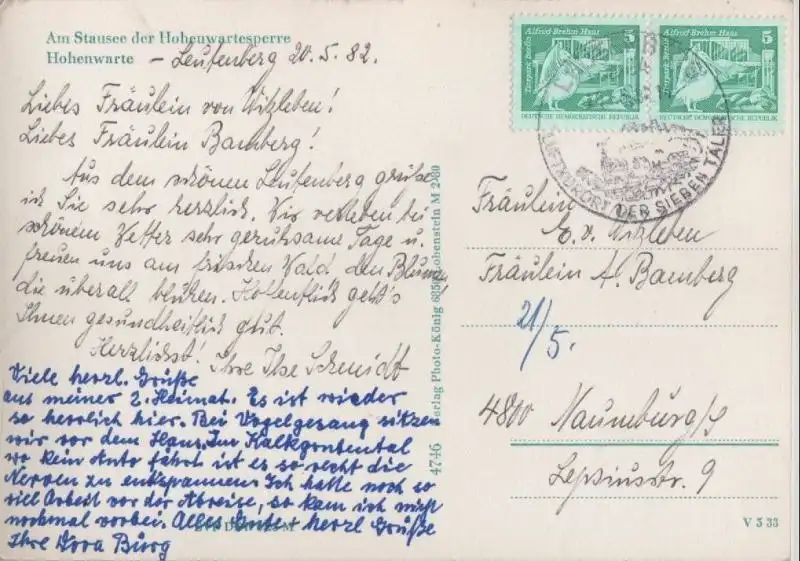 Am Stausee der Hohenwartesperre
Hohenwarte - Leutenberg 20.5.82.
Liebes Fräulein von Witzleben!
Liebes Fräulein Bamberg!
Aus dem schönen Leutenberg grüße
ich Sie sehr herzlich. Wir verleben bei
schönem Wetter sehr geruhsame Tage u.
freuen uns am frischen Wald den Blumen
die überall blühen. Hoffentlich geht's
Ihnen gesundheitlich gut.
Herzlichst! Ihre Ilse Schmidt
Viele herzl. Grüße
aus meiner 2. Heimat. Es ist wieder
so herrlich hier. Bei Vogelgesang sitzen
wir vor dem Haus. Im
wo kein Auto fährt ist es so recht die
Nerven zu entspannen. Ich hatte noch so
viel Arbeit vor der Abreise, so kam ich nicht
nochmal vorbei. Alles Gute + herzl Grüße
Ihre Dora Burg
4746 Verlag Photo-König Lobenstein M 2-80
Alfred-Brehm Haus 5
Tierpark Berlin
DEUTSCHE DEMOKRATISCHE REPUBLIK
Alfred-Brehm Haus 5
Tierpark Berlin
DEUTSCHE DEMOKRATISCHE REPUBLIK
LUFTKURORT DER SIEBEN TÄLER
Fräulein
E. v. Witzleben
Fräulein A. Bamberg
21/5.
4800 Naumburg/S
Lepsiusstr. 9
V 5 33